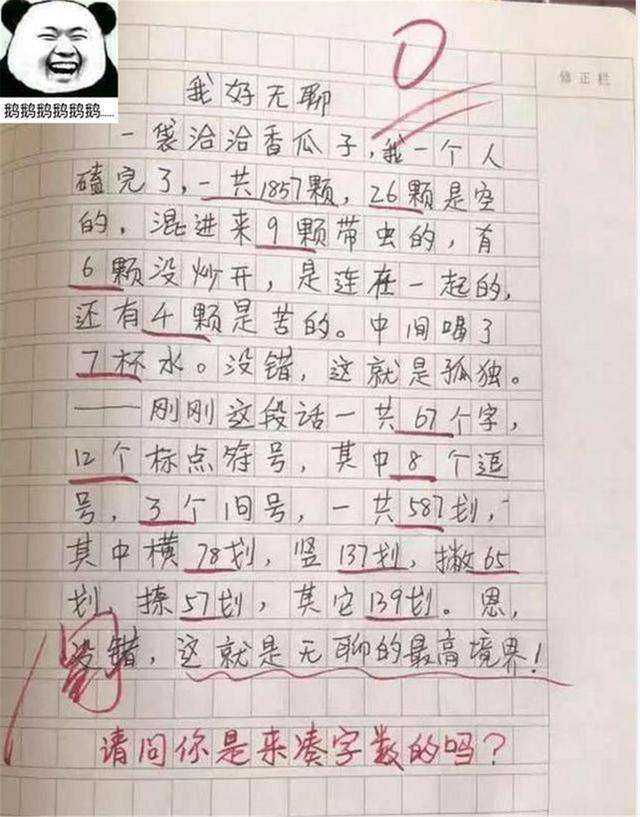 0
修正栏
鹅鹅鹅鹅鹅鹅......
我好无聊
一袋洽洽香瓜子,我一个人
磕完了,一共1857颗,26颗是空
的,混进来9颗带虫的,有
6颗没炒开,是连在一起的,
还有4颗是苦的。中间喝了
7杯水。没错,这就是孤独。
——刚刚这段话一共67个字,
12个标点符号,其中8个逗
号,3个旧号,一共587划,
其中横78划,竖137划,撇65
划,捺57划,其它139划。恩,
没错,这就是无聊的最高境界!
请问你是来凑字数的吗?